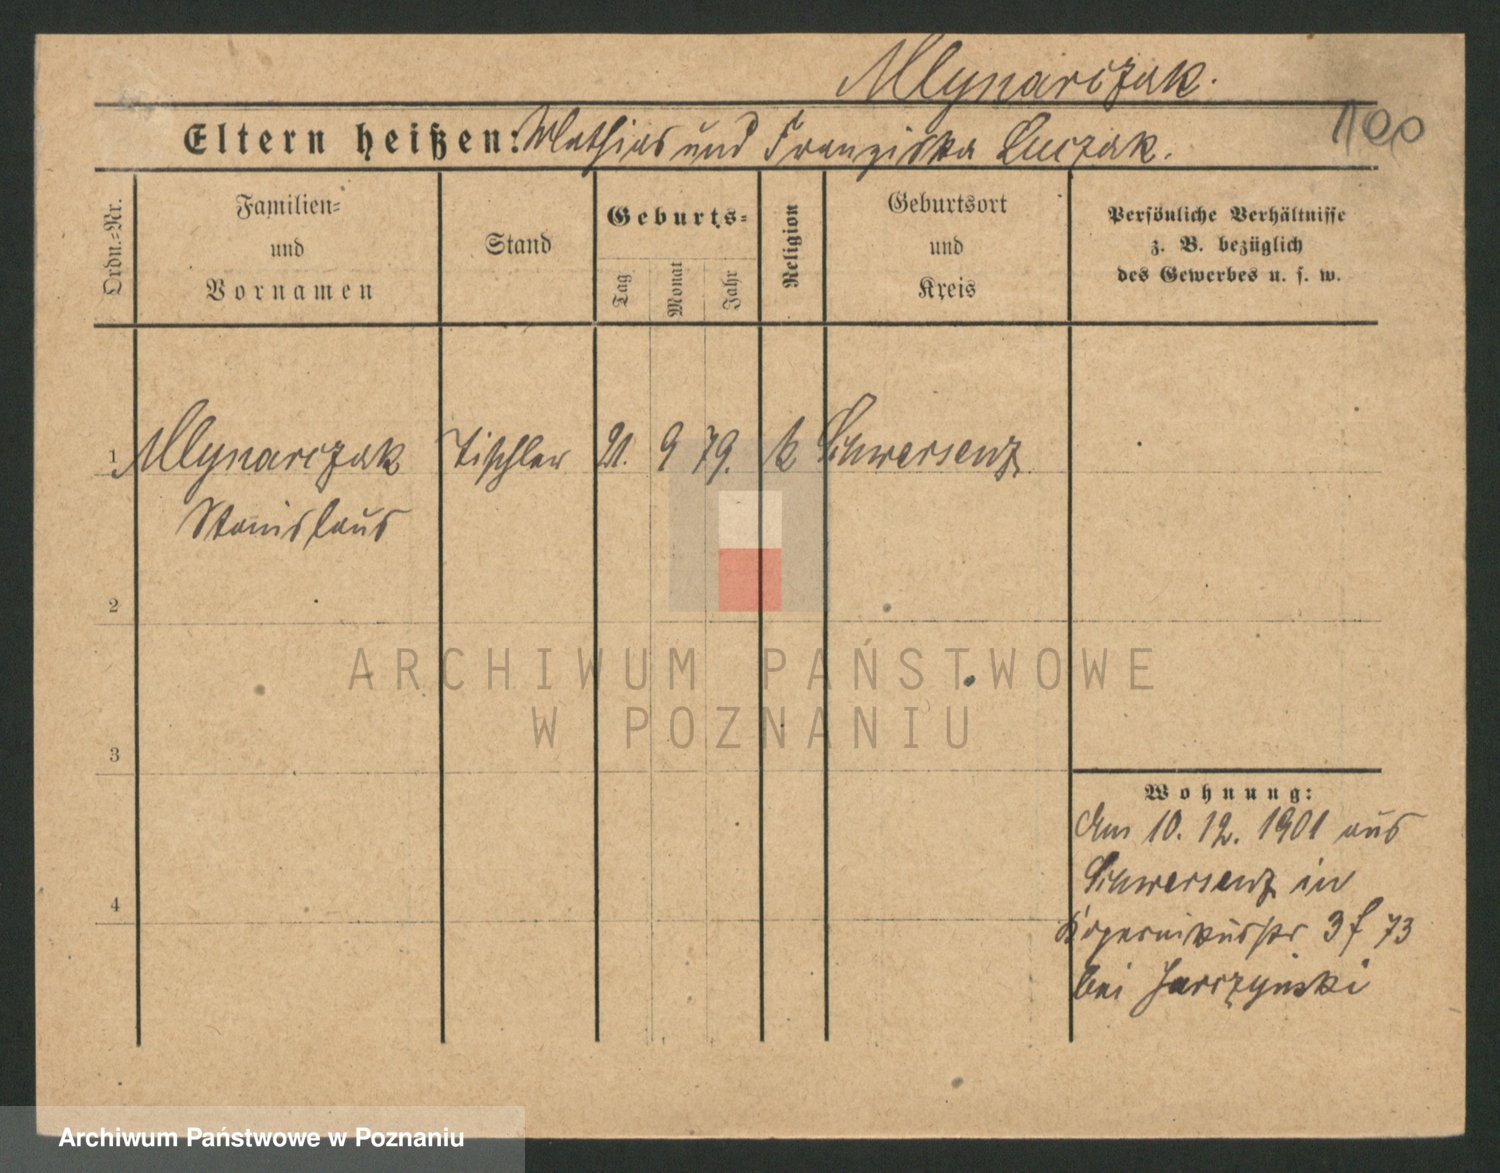 Mlynarczak.
100
Eltern heißen: Mathias und Franziska Luczak.
Ordn.-Nr.
Familien-
und
Vornamen
Stand
Geburts-
Tag
Monat
Jahr
Religion
Geburtsort
und
Kreis
Persönliche Verhältnisse
z. B. bezüglich
des Gewerbes u. s. w.
1 Mlynarczak Tischler 21. 9 79. k Schwersenz
Stanislaus
2
ARCHIWUM PAŃSTWOWE
W POZNANIU
3
Wohnung:
Am 10. 12. 1901 aus
Schwersenz in
4
Kopernikusstr 3 f 73
bei Jarczynski
Archiwum Państwowe w Poznaniu